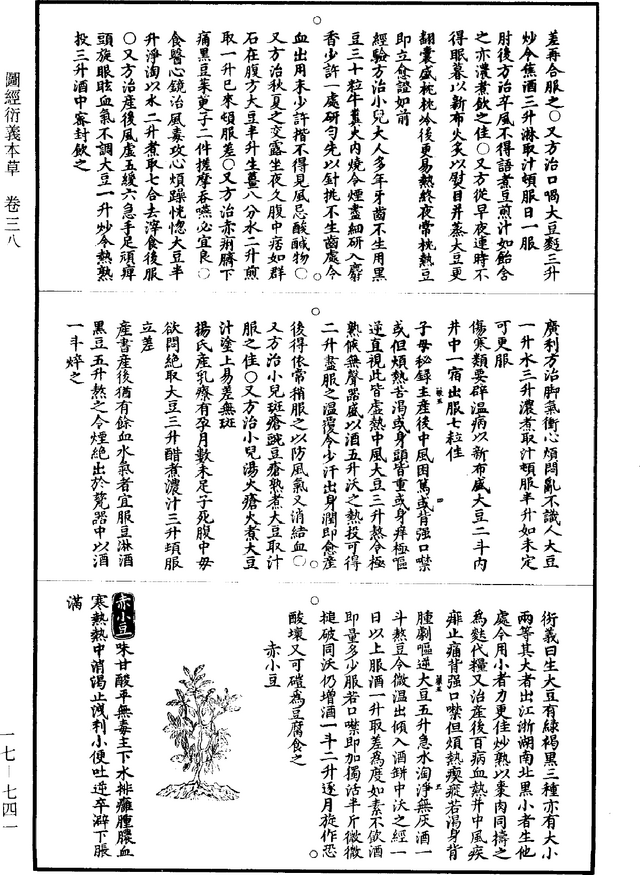 差再合服之○又方治口喎大豆麪三升
炒令焦酒三升淋取汁頓服日一服
肘後方治卒風不得語煮豆煎汁如飴含
之亦濃煮飲之佳○又方從早夜連時不
得眠暮以新布火炙以熨目并蒸大豆更
翻囊盛枕枕冷後更易熱終夜常枕熱豆
即立愈證如前
經驗方治小兒大人多年牙齒不生用黑
豆三十粒牛糞火內燒令煙盡細研入麝
香少許一處研勻先以針挑不生齒處令
血出用末少許揩不得見風忌酸醎物○
又方治秋夏之交露坐夜久腹中痞如群
石在腹方大豆半升生薑八分水二升煎
取一升已來頓服差○又方治赤痢臍下
痛黑豆茱萸子二件搓摩吞嚥必宜良○
食醫心鏡治風毒攻心煩躁恍惚大豆半
升淨淘以水二升煮取七合去滓食後服
○又方治產後風虛五緩六急手足頑痺
頭旋眼眩血氣不調大豆一升炒令熱熟
投三升酒中密封飲之
廣利方治脚氣衝心煩悶亂不識人大豆
一升水三升濃煮取汁頓服半升如未定
可更服
傷寒類要辟溫病以新布盛大豆二斗內
井中一宿出服七粒佳
子母秘録主產後中風困篤或背强口噤
或但煩熱苦渴或身頭皆重或身痒極嘔
逆直視此皆虛熱中風大豆三升熬令極
熟候無聲器盛以酒五升沃之熱投可得
二升盡服之溫覆令少汗出身潤即愈產
後得依常稍服之以防風氣又消結血○
又方治小兒斑瘡豌豆瘡熟煮大豆取汁
服之佳○又方治小兒湯火瘡火煮大豆
汁塗上易差無斑
楊氏產乳療有孕月數未足子死腹中母
欲悶絕取大豆三升醋煮濃汁三升頓服
立差
產書產後猶有餘血水氣者宜服豆淋酒
黑豆五升熬之令煙絕出於甆器中以酒
一斗焠之
衍義曰生大豆有緑褐黑三種亦有大小
兩等其大者出江浙湖南北黑小者生他
處令用小者力更佳炒熟以棗肉同擣之
為麨代糧又治產後百病血熱并中風疾
痱止痛背强口噤但煩熱瘈瘲若渴身背
腫劇嘔逆大豆五升急水淘淨無灰酒一
斗熬豆令微温出傾入酒缾中沃之經一
日以上服酒一升取差為度如素不飲酒
即量多少服若口噤即加獨活半斤微微
搥破同沃仍增酒一斗二升逐月旋作恐
酸壞又可磑為豆腐食之
赤小豆
赤小豆 味甘酸平無毒主下水排癰腫膿血
寒熱熱中消渴止洩利小便吐逆卒澼下脹
滿
圖經衍義本草 卷三八
一七—七四一